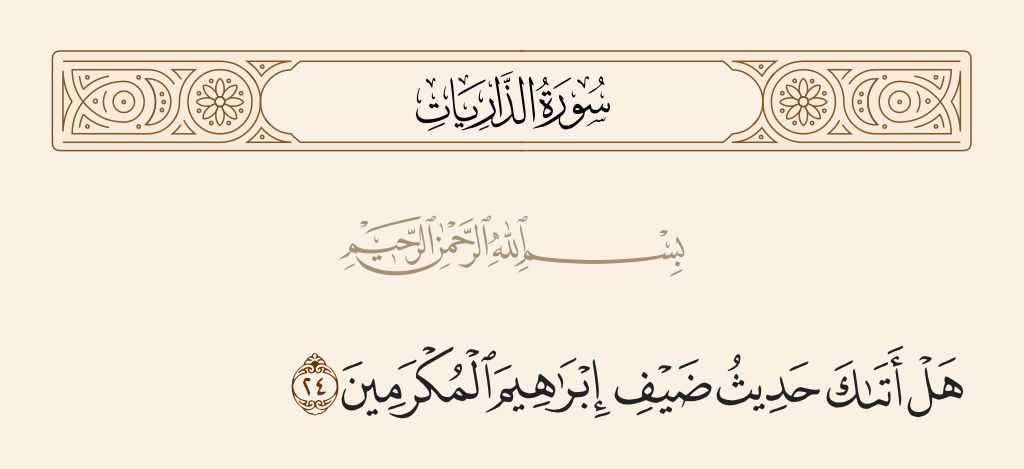 سُورَةُ الذَّارِيَاتِ
بِسْمِ ٱللَّهِ ٱلرَّحْمَٰنِ ٱلرَّحِيمِ
هَلْ أَتَىٰكَ حَدِيثُ ضَيْفِ إِبْرَٰهِيمَ ٱلْمُكْرَمِينَ ٢٤